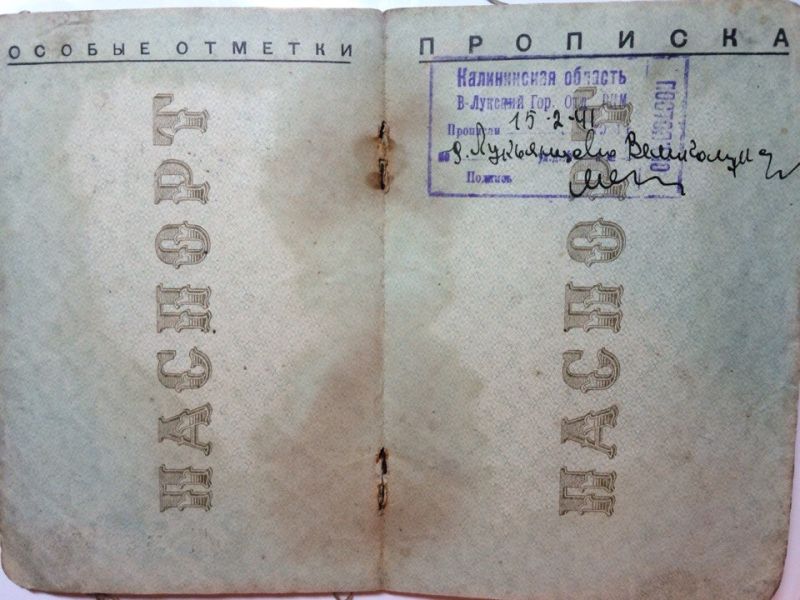 ОСОБЫЕ ОТМЕТКИ
ПАСПОРТ
ПРОПИСКА
Калининская область
В-Лукский Гор. Отд. РКМ
Прописан 15-2-41
Подпись
ПАСПОРТ